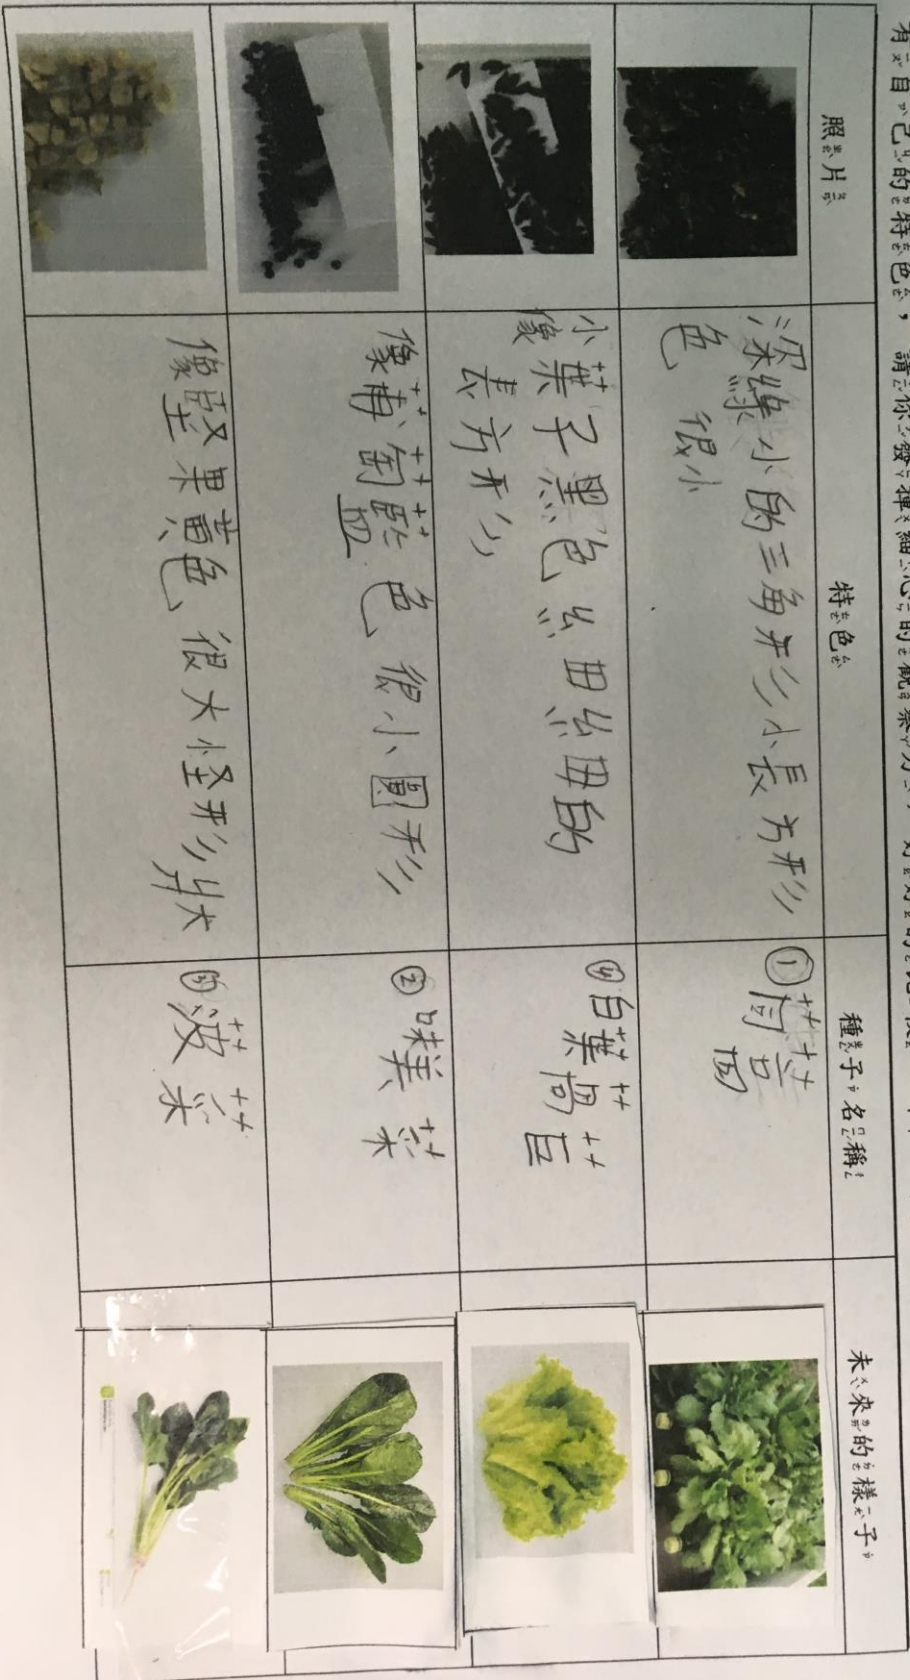 有自己的特色，請你發揮細心的觀察力，
照片
特色
種子名稱
未來的樣子
深綠小的三角形小長方形
色 很小
①茼蒿
小葉子黑色
像 長方形
④白葉萵苣
像葡萄藍色很小圓形
②味美菜
像堅果黃色很大怪形狀
③菠菜